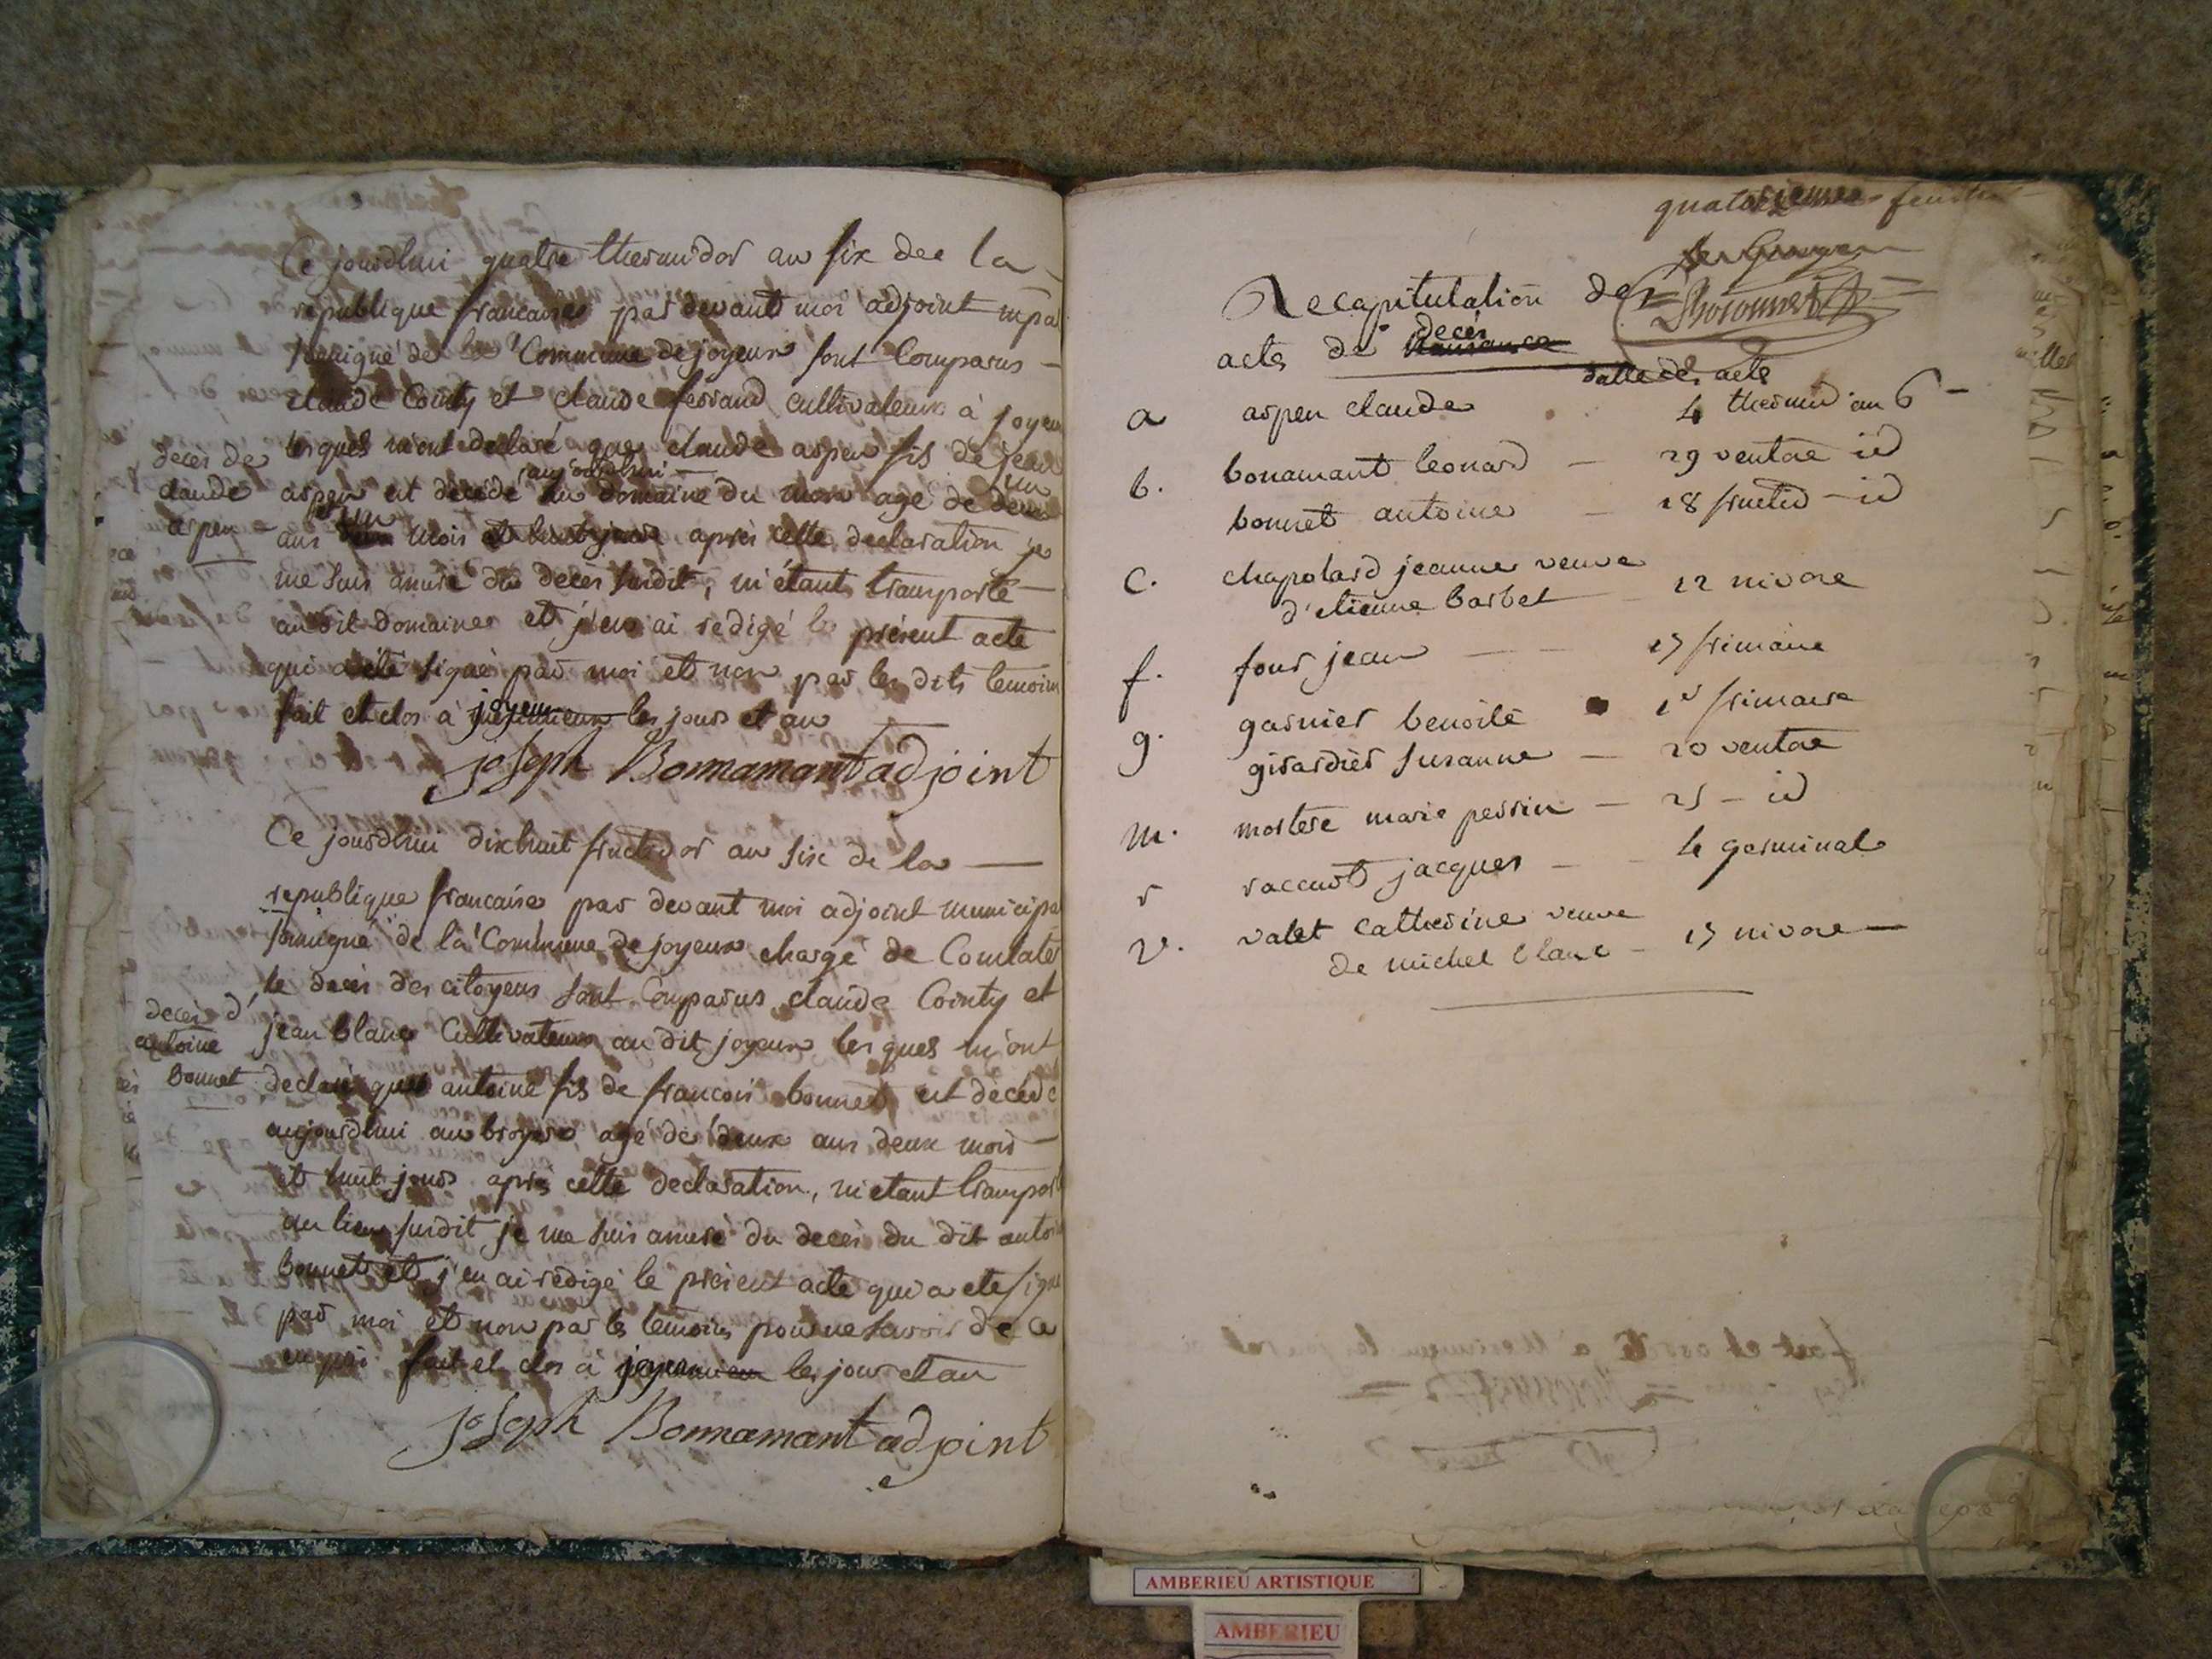 Ce jourdhui quatre thermidor an six de la
republique francaise par devant moi adjoint mpal
soussigné de la Commune de joyeux sont Comparus
claude Cointy et claude ferrand cultivateurs à joyeux
lesquels mont declaré que claude arpen fils de jean
aujourdhui
arpen est décedé au domaine du mon agé de deux
un
ans un mois et huit jours après cette declaration je
me suis assuré du decès susdit, m'étant transporté
au dit domaine et j'en ai redigé le présent acte
qui a été signé par moi et non par les dits temoins
fait et clos à joyeux les jour et an
joseph Bonnamant adjoint
decès de
claude
arpen
Ce jourdhui dixhuit fructidor an six de la
republique francaise par devant moi adjoint municipal
soussigné de la Commune de joyeux chargé de Constater
le decès des citoyens sont Comparus claude Cointy et
jean blanc Cultivateurs au dit joyeux lesquels m'ont
declaré que antoine fils de francois bonnet est décédé
aujourdhui au broyere agé de deux ans deux mois
et huit jours après cette declaration, m'etant transporté
au lieu susdit je me suis assuré du decès du dit antoine
bonnet et j'en ai rédigé le présent acte qui a ete signé
par moi et non par les temoins pour ne savoir de ce
enquis fait et clos à joyeux les jour et an
joseph Bonnamant adjoint
decès d'
antoine
bonnet
quatorzieme feuillet
Recapitulation des
actes de decès
datte des actes
a arpen claude 4 thermid an 6
b. bonamant leonard 29 ventose id
bonnet antoine 18 fructid id
c. chapolard jeanne veuve
d'etienne barbet 22 nivose
f. four jean 27 frimaire
g. garnier benoite 1er frimaire
girardier susanne 20 ventose
m. mortere marie perrin 25 id
r raccurt jacques 4 germinal
v. valet catherine veuve
de michel blanc 17 nivose
AMBERIEU ARTISTIQUE
AMBERIEU